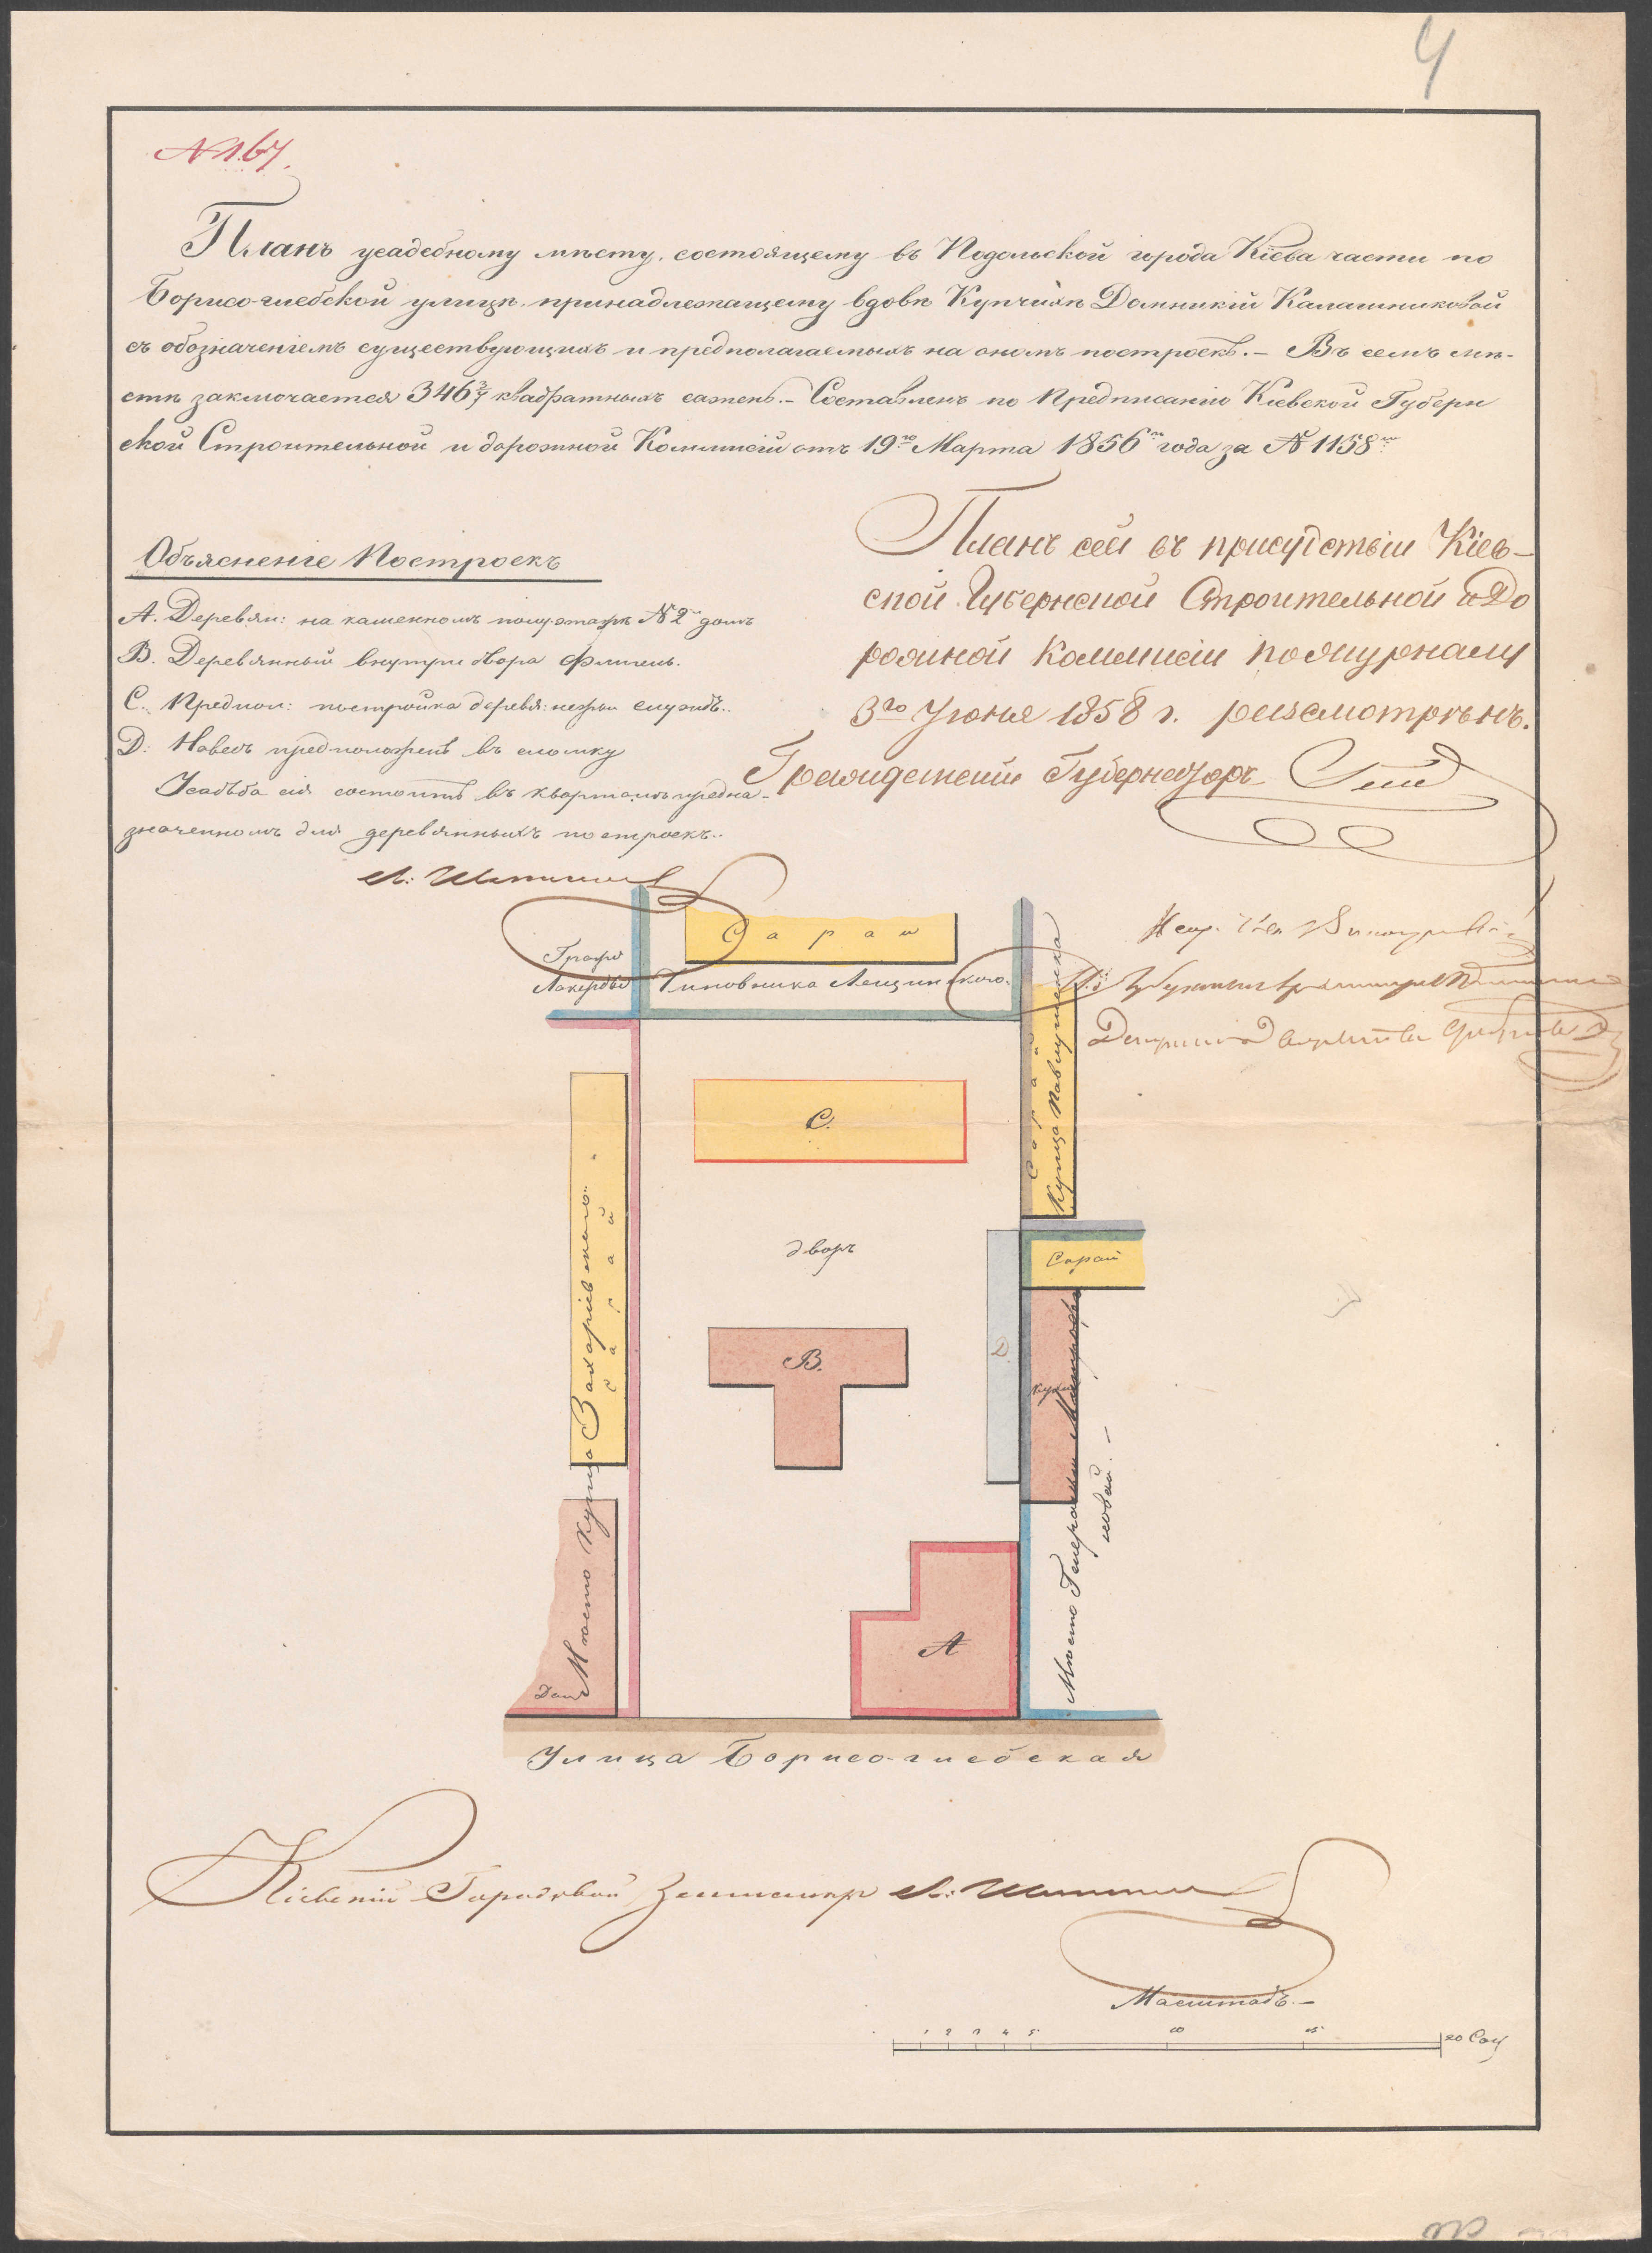 4
№ 167.
Планъ усадебному мѣсту, состоящему въ Подольской города Кіева части по
Борисо-глебской улицѣ, принадлежащему вдовѣ Купчихѣ Домникіи Калашниковой
съ обозначеніемъ существующихъ и предполагаемыхъ на ономъ построекъ.– Въ семъ мѣ-
стѣ заключается 346 3/7 квадратныхъ сажень.– Составленъ по Предписанію Кіевской Губерн
ской Строительной и дорожной Коммисіи отъ 19го Марта 1856го года за № 1158мъ
Объясненіе Построекъ
А. Деревян: на каменномъ полуэтажѣ №2й домъ
В. Деревянный внутри двора Флигель.
С. Предпол: постройка деревян: нежил служб..
D: Навесъ предположенъ въ сломку
Усадьба сія состоитъ въ кварталѣ предна-
значенномъ для деревянныхъ построекъ..
Планъ сей въ присутствіи Кіев-
ской Губернской Строительной и До
рожной Коммисіи по журналу
3го Іюня 1858 г. разсмотрѣнъ.
Гражданскій Губернаторъ
Сарай
Графа
Чиновника Лещинского.
Сарай
Купца
С.
дворъ
Сарай
Место Купца Захаріевского.
Сарай
В.
D
кухня
Место Генеральши
А
Домъ
Улица Борисо-глебская
Кіевскій Городовой Землемѣръ
Масштабъ.–
1 2 3 4 5 10 15 20 Саж